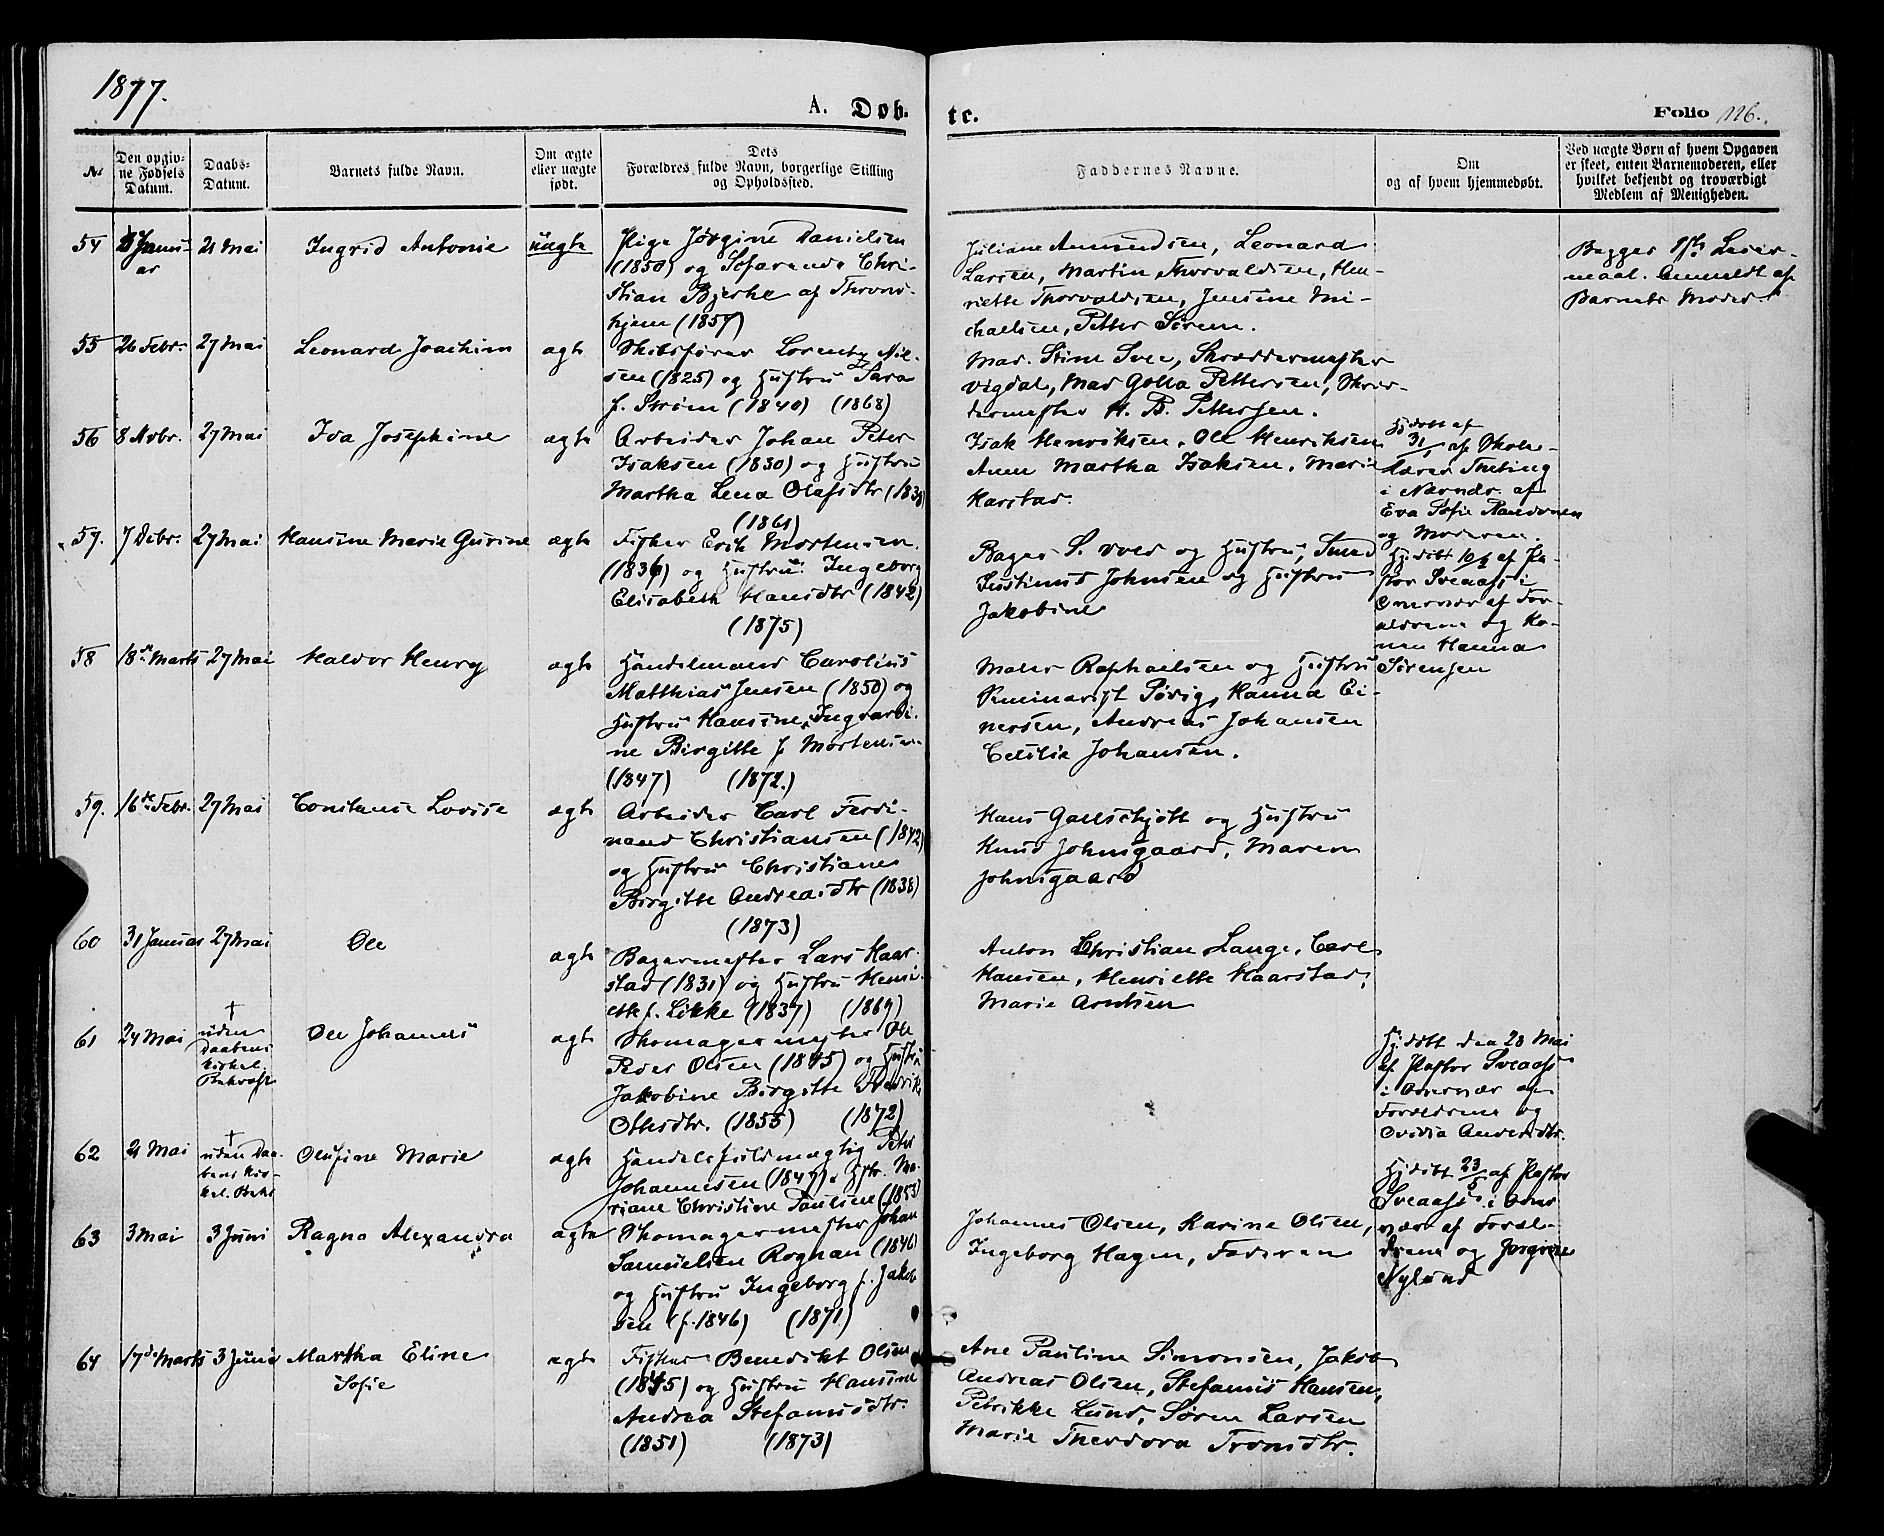 1877.
A. Døb-
te.
Folio 126.
No
Den opgiv-
ne Fødsels
Datum.
Daabs-
Datum.
Barnets fulde Navn.
Om ægte
eller uægte
født.
Dets
Forældres fulde Navn, borgerlige Stilling
og Opholdssted.
Faddernes Navne.
Om
og af hvem hjemmedøbt.
Ved uægte Børn af hvem Opgaven
er skeet, enten Barnemoderen, eller
hvilket bekjendt og troværdigt
Medlem af Menigheden.
54
Janu-
ar
21 Mai
Ingrid Antonie
uægte
Pige Jørgine Danielsen
(1850) og Sofarende Chri-
stian Bjerke af Thrond-
hjem (1857)
Juliane Amundsen, Leonard
Larsen, Martin Thorvaldsen, Hen-
riette Thorvaldsen, Jensine Mi-
chaelsen, Petter Sörem.
Begges 1ste Leier-
maal. Anmeldt af
Barnets Moder
55
26 Febr.
27 Mai
Leonard Joachim
ægte
Skibsfører Lorentz Niel-
sen (1825) og Hustru Sara
f. Strøm (1840) (1868)
Mad. Stine Svee, Skræddermester
Vigdal, Mad Golla Pettersen, Skræd-
dermester H. B. Pettersen.
56
8 Novbr.
27 Mai
Ida Josephine
ægte
Arbeider Johan Peter
Isaksen (1830) og Hustru
Martha Lena Olafsdtr (1838)
(1861)
Isak Henriksen, Ole Henriksen
Anne Martha Isaksen, Marie
Karstad.
Hjdøbt af
31/1 af Skole-
lærer
i Nærvær. af
Eva Sofie
og Moderen.
57.
7 Debr.
27 Mai
Hansine Marie Gurine
ægte
Fisker Erik Mortensen
(1836) og Hustru Ingeborg
Elisabeth Hansdtr (1842)
(1875)
Bager S. Voed og Hustru, Smed
Justinus Johnsen og Hustru
Jakobine
Hjdöbt af Pa-
stor Sveaass i
Overvær af For-
ældrene og Ko-
nen Hanna
Sörensen
58
18de Marts
27 Mai
Haldor Henry
ægte
Handelsmand Carolius
Matthias Jensen (1850) og
Hustru Hansine Ingvardi-
ne Birgitte f. Mortensen
(1847) (1872.)
Maler Raphaelsen og Hustru
Seminarist Sövig, Hanna Ei-
nersen, Andreas Johansen
Cecilie Johansen.
59.
16de Febr.
27 Mai
Constanse Lovise
ægte
Arbeider Carl Ferdi-
nand Christiansen (1842)
og Hustru Christiane
Birgitte Andreasdtr (1838)
(1873)
Hans Gallschjött og Hustru
Knud Johnsgaard, Maren
Johnsgaard
60
31 Januar
27 Mai
Ole
ægte
Bagermester Lars Haar-
stad (1831) og Hustru Henri-
ette f. Lökke (1837) (1869)
Anton Christian Lange, Carl
Hansen, Henriette Haarstad,
Marie Arntsen
61
24 Mai
†
uden
Daabens
kirkel.
Bekræft
Ole Johannes
ægte
Skomagermester Ole
Peder Olsen (1845) og Hustru
Jakobine Birgitte Fredrikke
Ottesdtr. (1855) (1872)
Hj. döbt den 28 Mai
af Pastor Sveaass
i Overvær af
Forældrene og
Ovidia Andersdtr.
62
21 Mai
†
uden Daa-
bens kir-
kel. Bekr
Olufine Marie
ægte
Handelsfuldmægtig Peter
Johannesen (1849) Hstr. Ma-
riane Christine Paulsen (1853)
Hjdöbt 23/5 af Pastor
Sveaass i Over-
vær af Foræl-
drene og Jørgine
Nylund
63
3 Mai
3 Juni
Ragna Alexandra
ægte
Skomagermester Johan
Samuelsen Rognan (1846)
og Hustru Ingeborg f. Jakob-
sen (f. 1846) (1871)
Johannes Olsen, Karine Olsen,
Ingeborg Hagen, Faderen
64
17de Marts
3 Juni
Martha Eline
Sofie
ægte
Fisker Benedikt Olsen
(1845) og Hustru Hansine
Andrea Stefanusdtr.
(1851) (1873)
Ane Pauline Simonsen, Jakob
Andreas Olsen, Stefanus Hansen,
Petrikke Lund, Sören Larsen
Marie Theodora Trondtr.